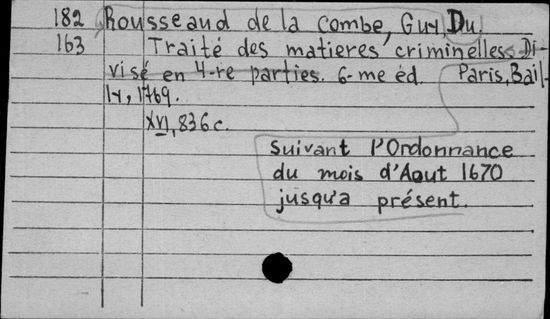 182 Rousseaud de la Combe, Guy, Du
163 Traité des matieres criminelles. Di-
visé en 4-re parties. 6-me éd. Paris, Bail-
ly, 1769.
XVI, 836 c.
suivant l'Ordonnance
du mois d'Aout 1670
jusqu'a présent.